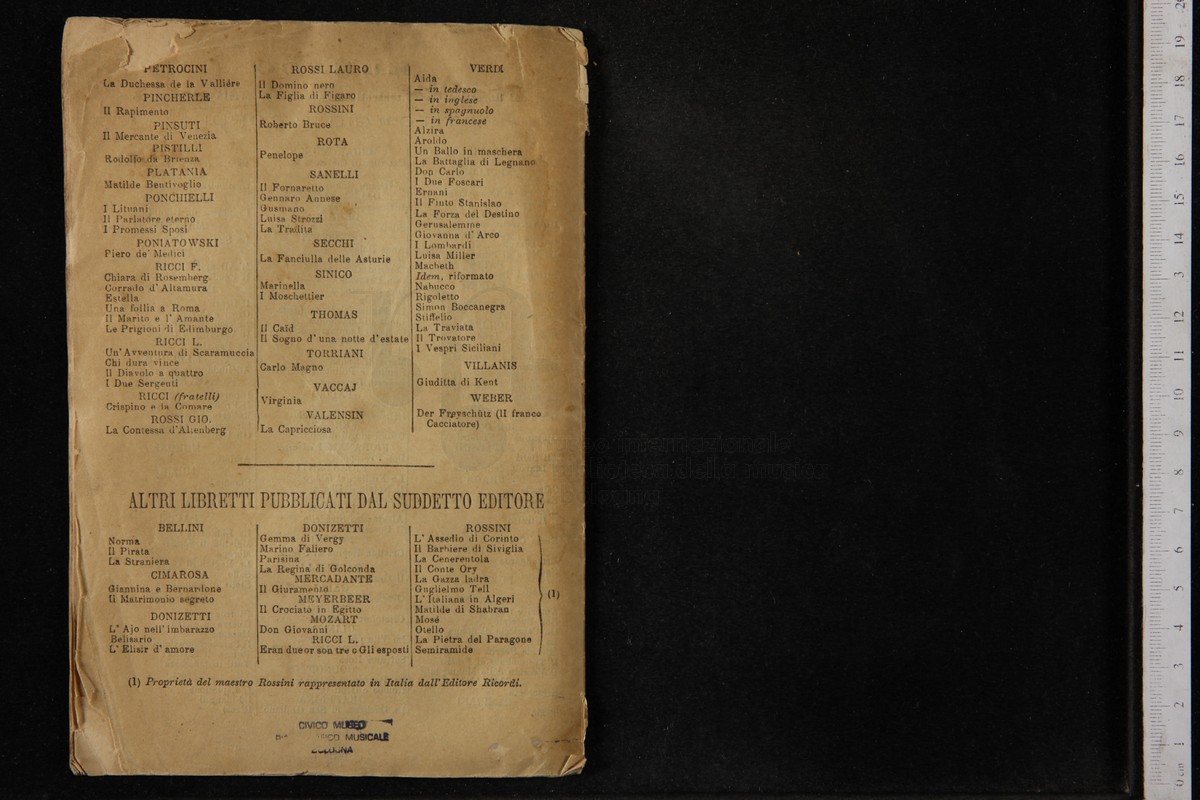 PETROCINI
La Duchessa de la Vallière
PINCHERLE
Il Rapimento
PINSUTI
Il Mercante di Venezia
PISTILLI
Rodolfo da Brienza
PLATANIA
Matilde Bentivoglio
PONCHIELLI
I Lituani
Il Parlatore eterno
I Promessi Sposi
PONIATOWSKI
Piero de' Medici
RICCI F.
Chiara di Rosemberg
Corrado d'Altamura
Estella
Una follia a Roma
Il Marito e l'Amante
Le Prigioni di Edimburgo
RICCI L.
Un'Avventura di Scaramuccia
Chi dura vince
Il Diavolo a quattro
I Due Sergenti
RICCI (fratelli)
Crispino e la Comare
ROSSI GIO.
La Contessa d'Altenberg
ROSSI LAURO
Il Domino nero
La Figlia di Figaro
ROSSINI
Roberto Bruce
ROTA
Penelope
SANELLI
Il Fornaretto
Gennaro Annese
Gusmano
Luisa Strozzi
La Tradita
SECCHI
La Fanciulla delle Asturie
SINICO
Marinella
I Moschettier
THOMAS
Il Caïd
Il Sogno d'una notte d'estate
TORRIANI
Carlo Magno
VACCAJ
Virginia
VALENSIN
La Capricciosa
VERDI
Aida
— in tedesco
— in inglese
— in spagnuolo
— in francese
Alzira
Aroldo
Un Ballo in maschera
La Battaglia di Legnano
Don Carlo
I Due Foscari
Ernani
Il Finto Stanislao
La Forza del Destino
Gerusalemme
Giovanna d'Arco
I Lombardi
Luisa Miller
Macbeth
Idem, riformato
Nabucco
Rigoletto
Simon Boccanegra
Stiffelio
La Traviata
Il Trovatore
I Vespri Siciliani
VILLANIS
Giuditta di Kent
WEBER
Der Freyschütz (Il franco
Cacciatore)
ALTRI LIBRETTI PUBBLICATI DAL SUDDETTO EDITORE
BELLINI
Norma
Il Pirata
La Straniera
CIMAROSA
Giannina e Bernardone
Il Matrimonio segreto
DONIZETTI
L'Ajo nell'imbarazzo
Belisario
L'Elisir d'amore
DONIZETTI
Gemma di Vergy
Marino Faliero
Parisina
La Regina di Golconda
MERCADANTE
Il Giuramento
MEYERBEER
Il Crociato in Egitto
MOZART
Don Giovanni
RICCI L.
Eran due or son tre o Gli esposti
ROSSINI
L'Assedio di Corinto
Il Barbiere di Siviglia
La Cenerentola
Il Conte Ory
La Gazza ladra
Guglielmo Tell
L'Italiana in Algeri
Matilde di Shabran
Mosè
Otello
La Pietra del Paragone
Semiramide
(1)
(1) Proprietà del maestro Rossini rappresentato in Italia dall'Editore Ricordi.
CIVICO MUSEO
MUSICALE
BOLOGNA